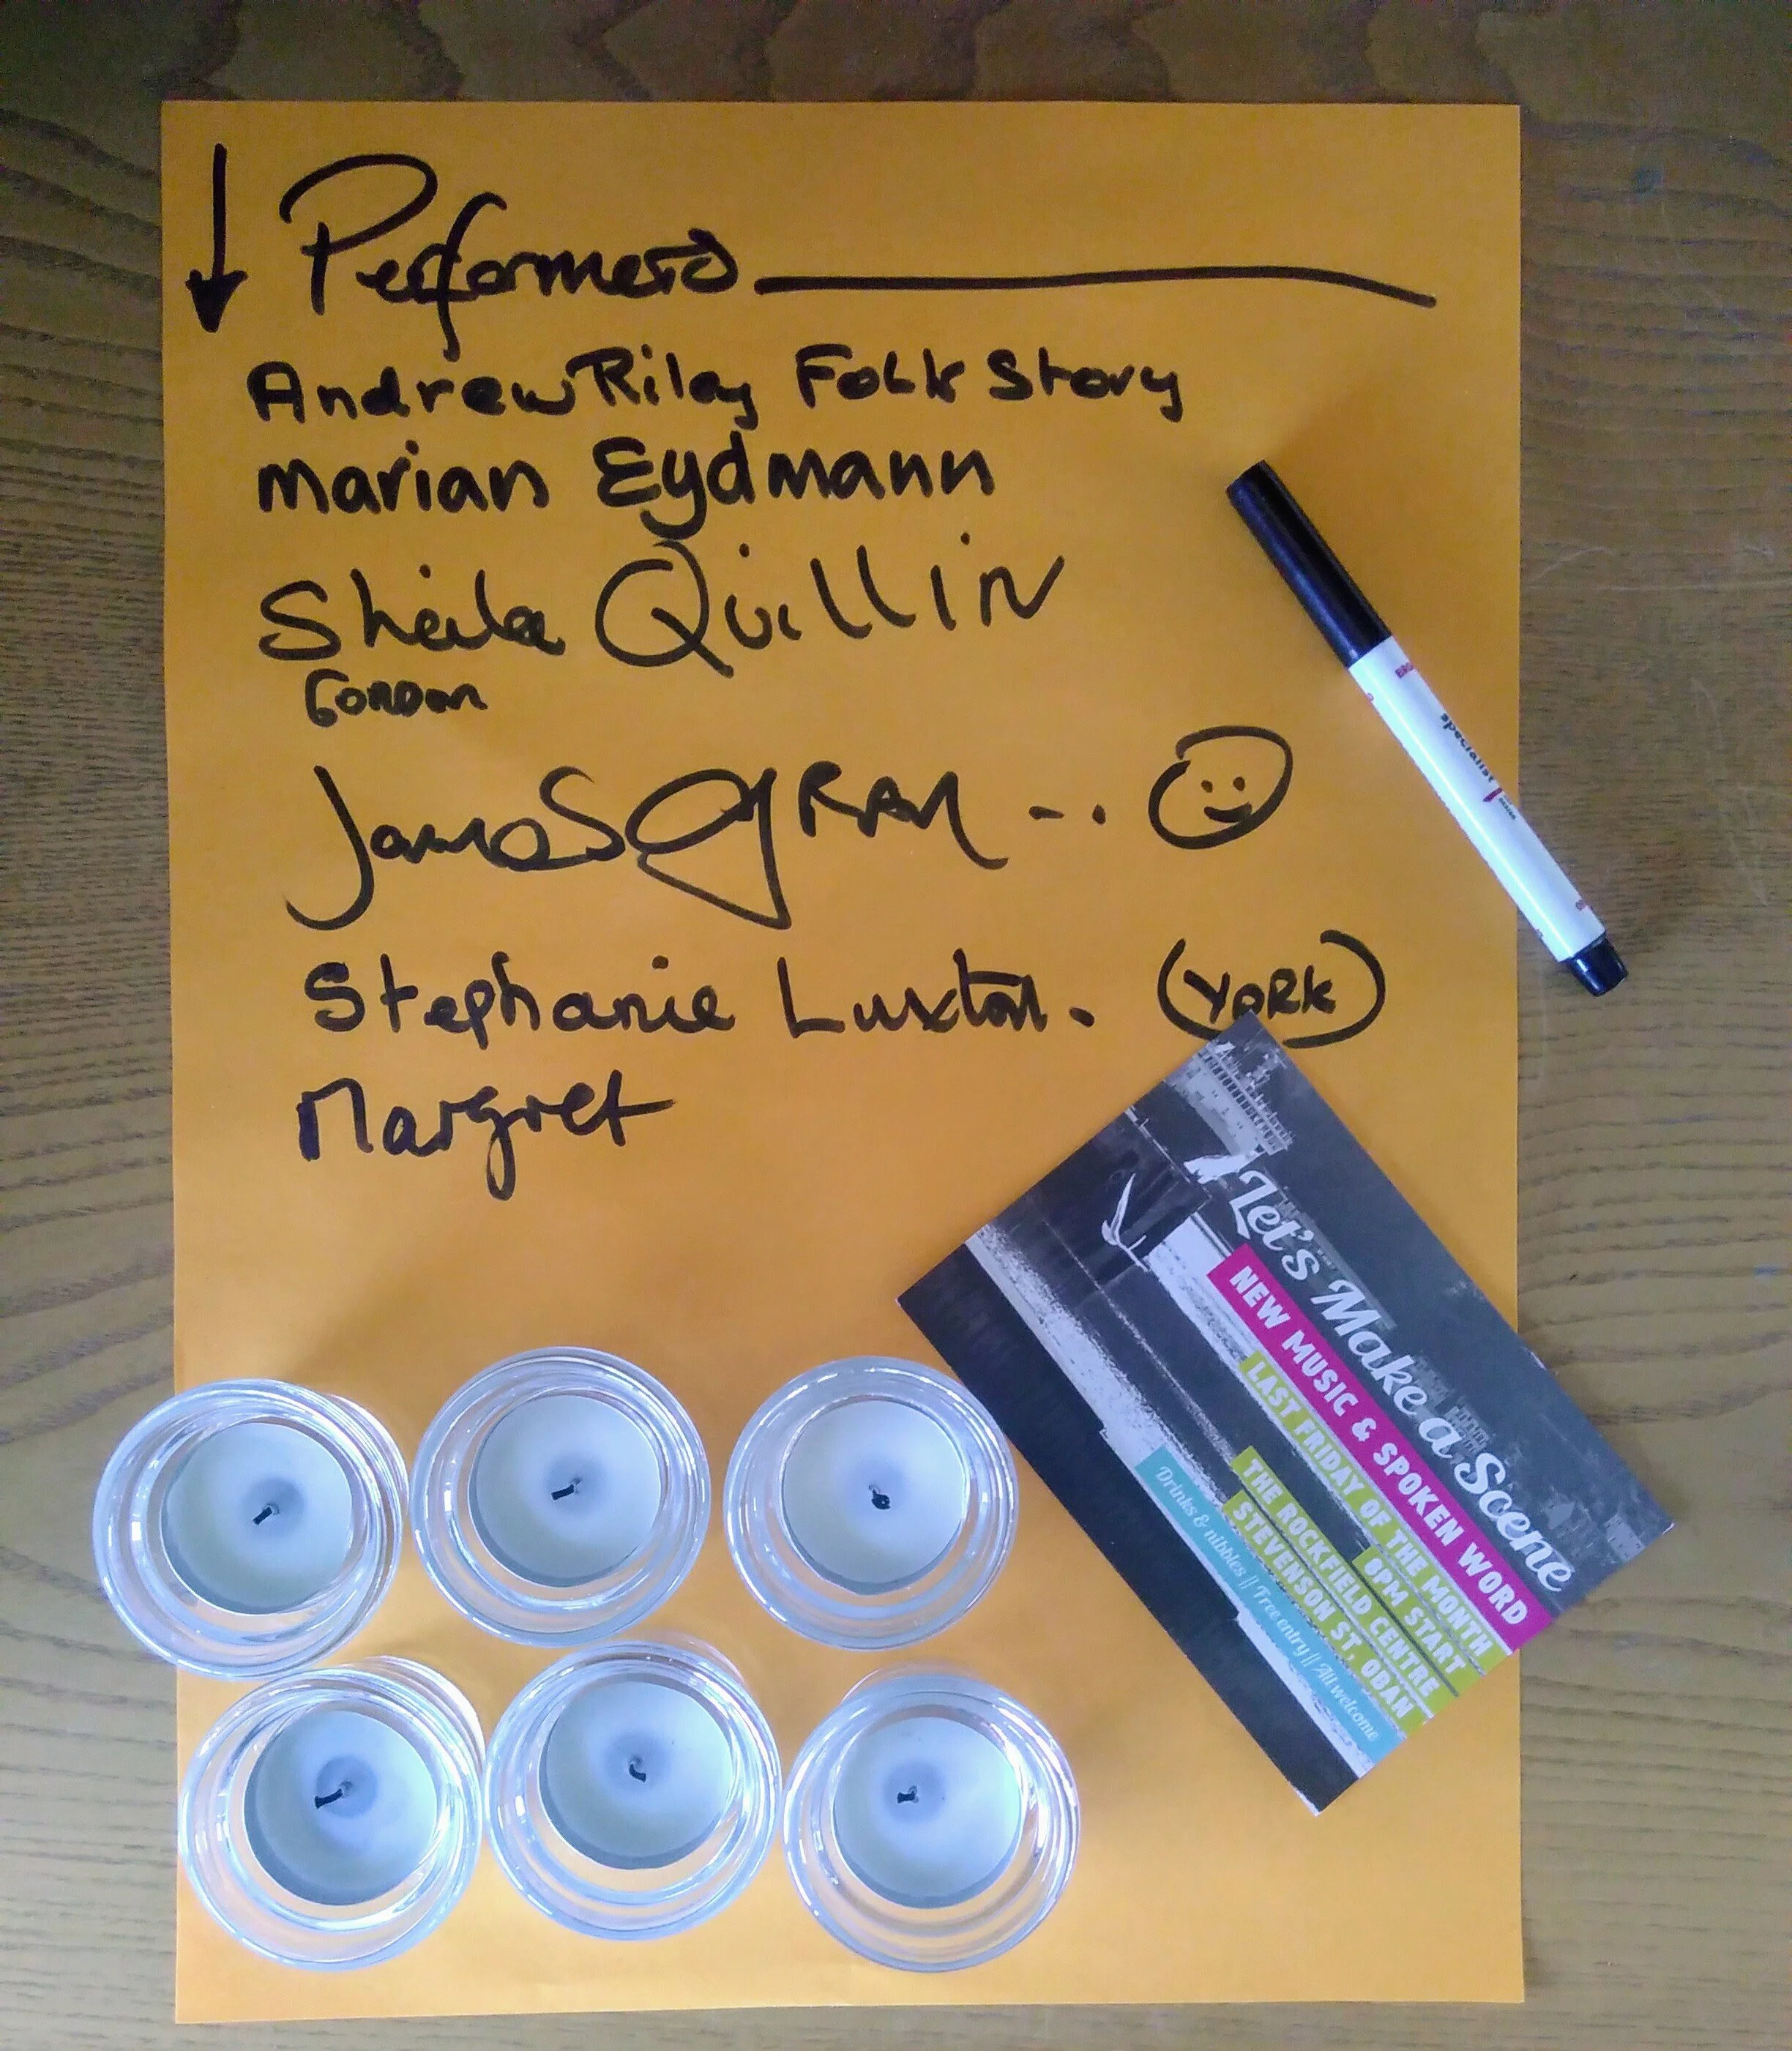 Performers
Andrew Riley Folk Story
Marian Eydmann
Sheila Quillin
Gordon
James Gray --.
Stephanie Luxton. (YORK)
Margret
specialist
Let's Make a Scene
NEW MUSIC & SPOKEN WORD
LAST FRIDAY OF THE MONTH
8PM START
THE ROCKFIELD CENTRE
STEVENSON ST, OBAN
Drinks & nibbles || Free entry || All welcome